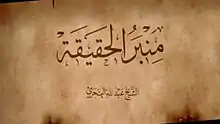 منبر الحقيقة
الشيخ عبد الله